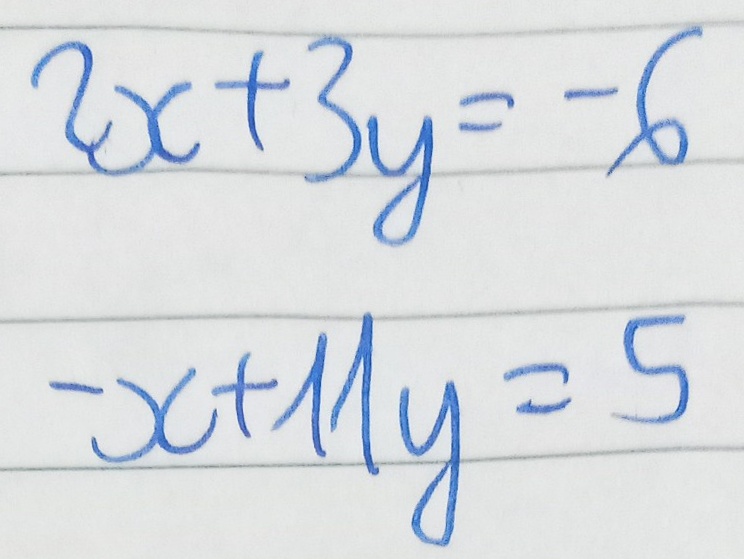 2x+3y=-6
-x+11y=5